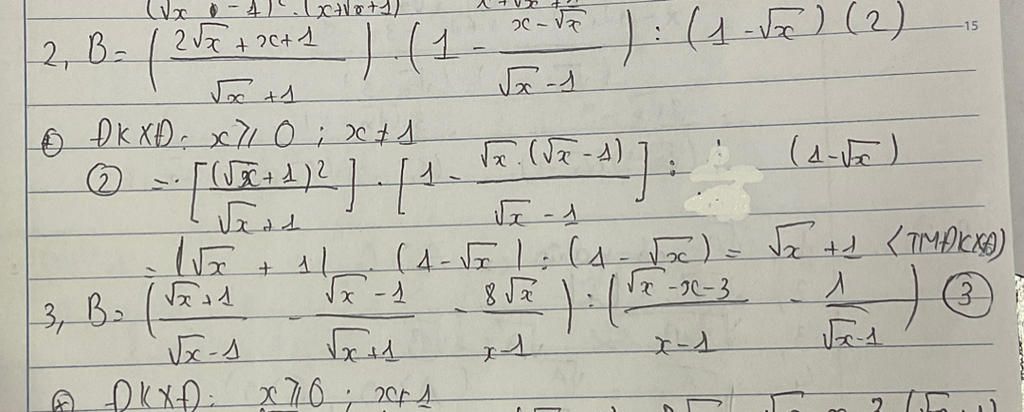 (√x - 1)² . (x+√x+1)
2, B = ( (2√x + x + 1)/(√x + 1) ) . ( 1 - (x - √x)/(√x - 1) ) : (1 - √x) (2)
15
ĐKXĐ: x ⩾ 0 ; x ≠ 1
② = [ (√x + 1)²/(√x + 1) ] . [ 1 - √x . (√x - 1)/(√x - 1) ] : (1 - √x)
= (√x + 1) . (1 - √x) : (1 - √x) = √x + 1 (TMĐKXĐ)
3, B = ( (√x + 1)/(√x - 1) - (√x - 1)/(√x + 1) - 8√x/(x - 1) ) : ( (√x - x - 3)/(x - 1) - 1/(√x - 1) ) ③
ĐKXĐ: x ⩾ 0 ; x ≠ 1